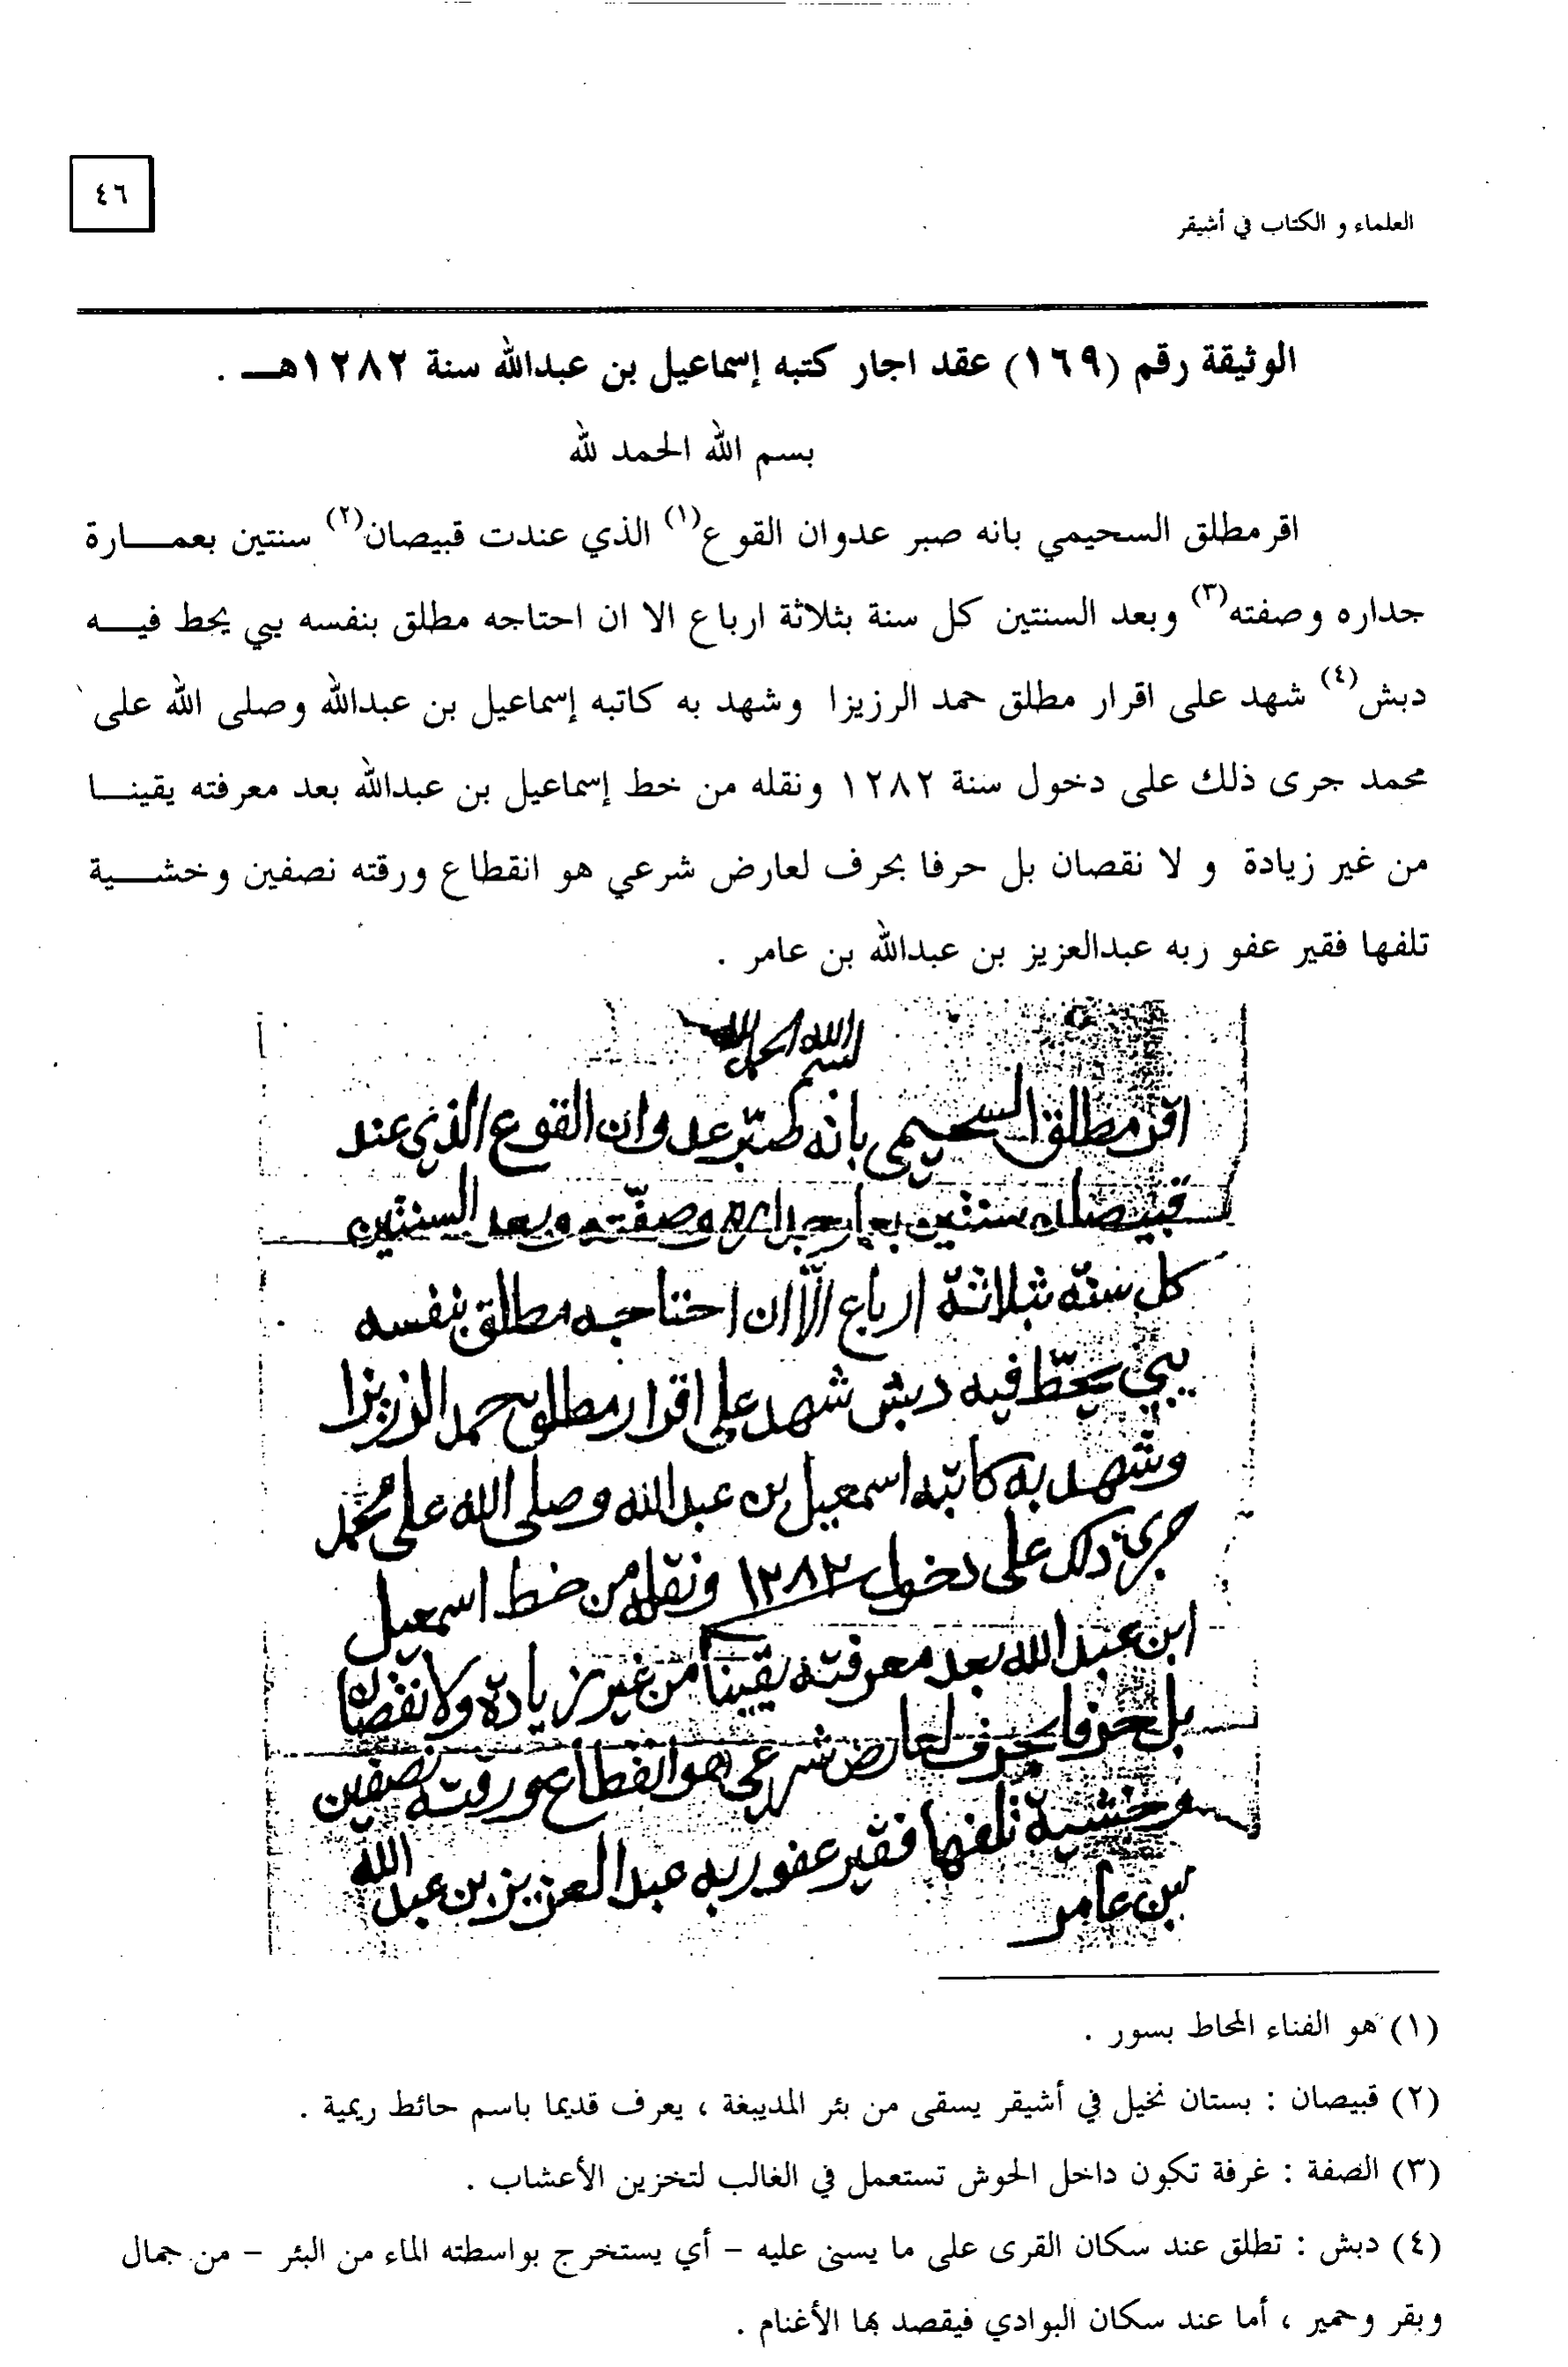 ٤٦
العلماء و الكتاب في أشيقر
الوثيقة رقم (١٦٩) عقد اجار كتبه إسماعيل بن عبدالله سنة ١٢٨٢هـ .
بسم الله الحمد لله
اقر مطلق السحيمي بانه صبر عدوان القوع(١) الذي عندت قبيصان(٢) سنتين بعمارة
جداره وصفته(٣) وبعد السنتين كل سنة بثلاثة ارباع الا ان احتاجه مطلق بنفسه يبي يحط فيه
دبش(٤) شهد على اقرار مطلق حمد الرزيزا وشهد به كاتبه إسماعيل بن عبدالله وصلى الله على
محمد جرى ذلك على دخول سنة ١٢٨٢ ونقله من خط إسماعيل بن عبدالله بعد معرفته يقينا
من غير زيادة و لا نقصان بل حرفا بحرف لعارض شرعي هو انقطاع ورقته نصفين وخشية
تلفها فقير عفو ربه عبدالعزيز بن عبدالله بن عامر .
بسم الله الحمد لله
اقر مطلق السحيمي بانه صبّر عدوان القوع الذي عند
قبيصان سنتين بعمارجداره وصفّته وبعد السنتين
كل سنة بثلاثة ارباع الّا ان احتاجه مطلق بنفسه
يبي يحطّ فيه دبش شهد على اقرار مطلق حمد الرزيزا
وشهد به كاتبه اسمعيل بن عبدالله وصلى الله على محمد
جرى ذلك على دخول ١٢٨٢ ونقله من خط اسمعيل
ابن عبدالله بعد معرفته يقيناً من غير زيادة ولا نقصان
بل حرفا بحرف لعارض شرعي هو انقطاع ورقته نصفين
وخشية تلفها فقير عفو ربه عبدالعزيز بن عبدالله
بن عامر
(١) هو الفناء المحاط بسور .
(٢) قبيصان : بستان نخيل في أشيقر يسقى من بئر المديبغة ، يعرف قديما باسم حائط ريمية .
(٣) الصفة : غرفة تكون داخل الحوش تستعمل في الغالب لتخزين الأعشاب .
(٤) دبش : تطلق عند سكان القرى على ما يسنى عليه – أي يستخرج بواسطته الماء من البئر – من جمال
وبقر وحمير ، أما عند سكان البوادي فيقصد بها الأغنام .